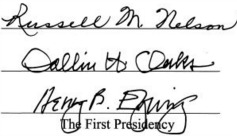 Russell M. Nelson
Dallin H Oaks
Henry B. Eyring
The First Presidency